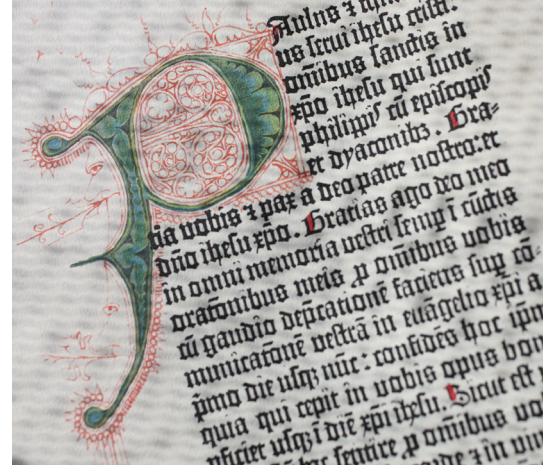 Paulus ⁊
us serui ihesu cristi:
om̄ibus sanctis in
xp̄o ihesu qui sunt
philippis cū episcopis
et dyaconibꝫ. Gra-
tia vobis ⁊ pax a deo patre nostro: et
dn̄o ihesu xp̄o. Gracias ago deo meo
in omni memoria vestri semꝑ ī cūctis
oratōnibus meis ꝓ om̄ibus vobis
cū gaudio dep̄cationē faciens suꝑ cō-
municatōne vestrā in euāgelio xp̄i a
p̄mo die usqꝫ nūc: confidēs hoc ip̄m
quia qui cepit in vobis opus bon
ꝑficiet usqꝫ ī diē xp̄i ihesu. Sicut est
hoc sentire ꝓ omnibus vo
⁊ in vin